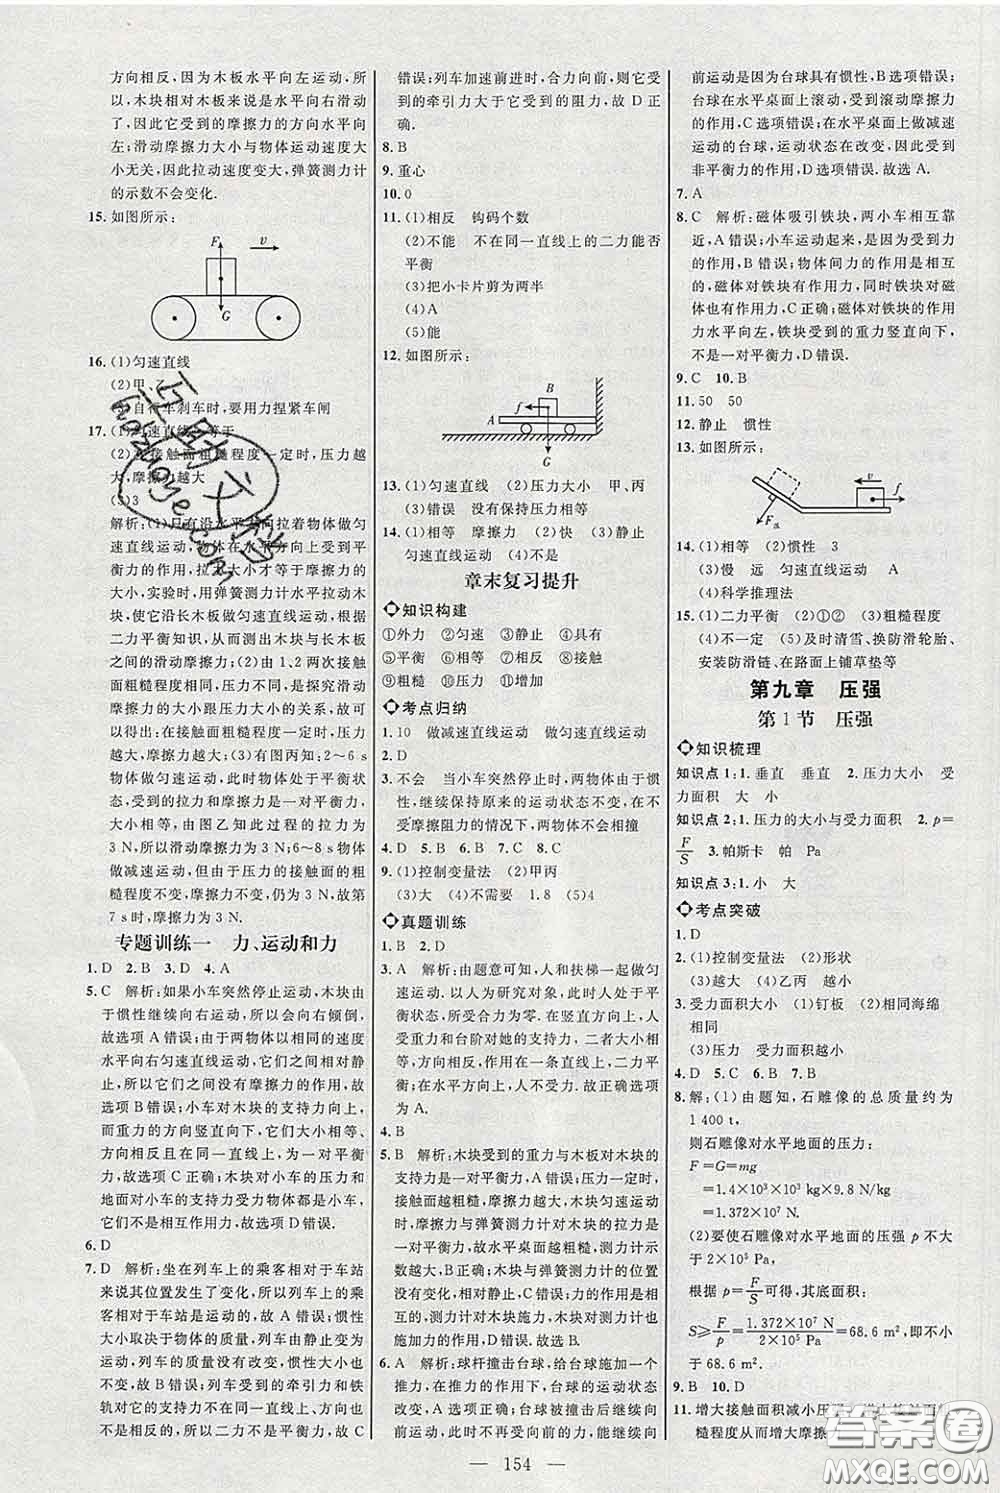 方向相反,因为木板水平向左运动,所
以,木块相对木板来说是水平向右滑动
了,因此它受到的摩擦力的方向水平向
左;滑动摩擦力大小与物体运动速度大
小无关,因此拉动速度变大,弹簧测力计
的示数不会变化.
15. 如图所示:
F
v
G
16. (1)匀速直线
(2)甲、乙
(3)自行车刹车时,要用力捏紧车闸
17. (1)匀速直线 等于
(2)在接触面粗糙程度一定时,压力越
大,摩擦力越大
(3)3
解析:(1)只有沿水平方向拉着物体做匀
速直线运动,物体在水平方向上受到平
衡力的作用,拉力大小才等于摩擦力的大
小,实验时,用弹簧测力计水平拉动木
块,使它沿长木板做匀速直线运动,根据
二力平衡知识,从而测出木块与长木板
之间的滑动摩擦力;(2)由1、2两次接触
面粗糙程度相同,压力不同,是探究滑动
摩擦力的大小跟压力大小的关系,故结
论为:在接触面粗糙程度一定时,压力越
大,摩擦力越大;(3)有图丙知:2~6 s
物体做匀速运动,物体处于平衡
状态,受到的拉力和摩擦力是一对平衡
力,大小相等,由图乙知此过程的拉力为
3 N,所以滑动摩擦力为3 N;6~8 s物体
做减速运动,但由于压力和接触面的粗
糙程度不变,摩擦力不变,仍为3 N,故第
7 s时,摩擦力为3 N.
专题训练一 力、运动和力
1. D 2. B 3. D 4. A
5. C 解析:如果小车突然停止运动,木块由
于惯性继续向右运动,所以会向右倾倒,
故选项A错误;由于两物体以相同的速度
水平向右匀速直线运动,它们之间相对静
止,所以它们之间没有摩擦力的作用,故
选项B错误;小车对木块的支持力向上,
而重力的方向竖直向下,它们大小相等、
方向相反且在同一直线上,是一对平衡
力,故选项C正确;木块对小车的压力和
地面对小车的支持力受力物体都是小车,
它们不是相互作用力,故选项D错误.
6. D
7. D 解析:坐在列车上的乘客相对于车站
来说其位置发生了变化,所以列车上的
乘客相对于车站是运动的,故A错误;惯性
大小取决于物体的质量,列车由静止变为
运动,列车的质量没有改变,惯性大小不
变,故B错误;列车受到的牵引力和铁
轨对它的支持力的方向不在一条直线上,
方向也不相反,所以二力不是平衡力,故C
错误;列车加速前进时,合力向前,则它受
到的牵引力大于它受到的阻力,故D正
确.
8. B
9. 重心
10. 0
11. (1)相反 钩码个数
(2)不能 不在同一直线上的二力能否
平衡
(3)把小卡片剪为两半
(4)A
(5)能
12. 如图所示:
B
f
A
G
13. (1)匀速直线 (2)压力大小 甲、丙
(3)错误 没有保持压力相等
14. (1)相等 摩擦力 (2)快 (3)静止
匀速直线运动 (4)不是
章末复习提升
知识构建
①外力 ②匀速 ③静止 ④具有
⑤平衡 ⑥相等 ⑦相反 ⑧接触
⑨粗糙 ⑩压力 ⑪增加
考点归纳
1. 10 做减速直线运动 做匀速直线运动
2. D
3. 不会 当小车突然停止时,两物体由于惯
性,继续保持原来的运动状态不变,在不
受摩擦阻力的情况下,两物体不会相撞
4. D 5. B 6. C 7. C 8. C
9. (1)控制变量法 (2)甲丙
(3)大 (4)不需要 1. 8 (5)4
真题训练
1. B 2. D
3. A 解析:由题意可知,人和扶梯一起做匀
速运动.以人为研究对象,人处于平衡状
态,所受合力为零.在竖直方向上,人
受重力和台阶对她的支持力,二者大小相
等,方向相反,作用在一条直线上,二力平
衡;在水平方向上,人不受力.故正确选项
为A.
4. B
5. B 解析:木块受到的重力与木板对木块的
支持力是一对平衡力,A错误;压力一定时,
接触面越粗糙,摩擦力越大,木块匀速运动
时,摩擦力与弹簧测力计对木块的拉力是
一对平衡力,故水平桌面越粗糙,测力计示
数越大,B正确;木块与弹簧测力计的位置
没有变化,相对静止,C错误;力的作用是相
互的,测力计对木块施力,木块对测力计也
施加力的作用,D错误.故选B.
6. A 解析:球杆撞击台球,给台球施加一个
推力,在推力的作用下,台球的运动状态
发生改变,A正确;台球被撞击后继续向
前运动,此时不再受向前的力,能继续向
前运动是因为台球具有惯性,B选项错误;
台球在水平桌面上滚动,受滚动摩擦力
的作用,C选项错误;在水平桌面上做减速
运动的台球,运动状态在改变,所以受到
非平衡力的作用,D选项错误.故选A.
7. A
8. C 解析:磁体吸引铁块,两小车相互靠
近,A错误;小车运动起来,是因为受到力
的作用,B错误;物体间力的作用是相互的,
磁体对铁块有作用力,同时铁块对磁
体也有作用力,C正确;磁体对铁块的作用
力水平向左,铁块受到的重力竖直向下,
不是一对平衡力,D错误.
9. C 10. B
11. 50 50
12. 静止 惯性
13. 如图所示:
v
f
F压
14. (1)相等 (2)惯性 3
(3)慢 远 匀速直线运动 A
(4)科学推理法
15. (1)二力平衡 (2)①② (3)粗糙程度
(4)不一定 (5)及时清雪、换防滑轮胎、
安装防滑链、在路面上铺草垫等
第九章 压强
第1节 压强
知识梳理
知识点1:1. 垂直 垂直 2. 压力大小 受
力面积 大 小
知识点2:1. 压力的大小与受力面积 2. p=
F/S 3. 帕斯卡 帕 Pa
知识点3:1. 小 大
考点突破
1. D
2. (1)控制变量法 (2)形状
(3)越大 (4)乙丙 越小
3. 受力面积大小 (1)钉板 (2)相同海绵
相同
(3)压力 受力面积越小
4. D 5. C 6. B 7. B
8. 解:(1)由题知,石雕像的总质量约为
1 400 t,
则石雕像对水平地面的压力:
F=G=mg
=1.4×10³×10³ kg×9.8 N/kg
=1.372×10⁷ N.
(2)要使石雕像对水平地面的压强p不大
于2×10⁵ Pa,
根据p=F/S可得,其底面积:
S≥F/p=1.372×10⁷ N/2×10⁵ Pa=68.6 m²,即不小
于68.6 m².
9. B 10. D
11. 增大接触面积减小压强
糙程度从而增大摩擦
154
答案圈
MXQE.COM